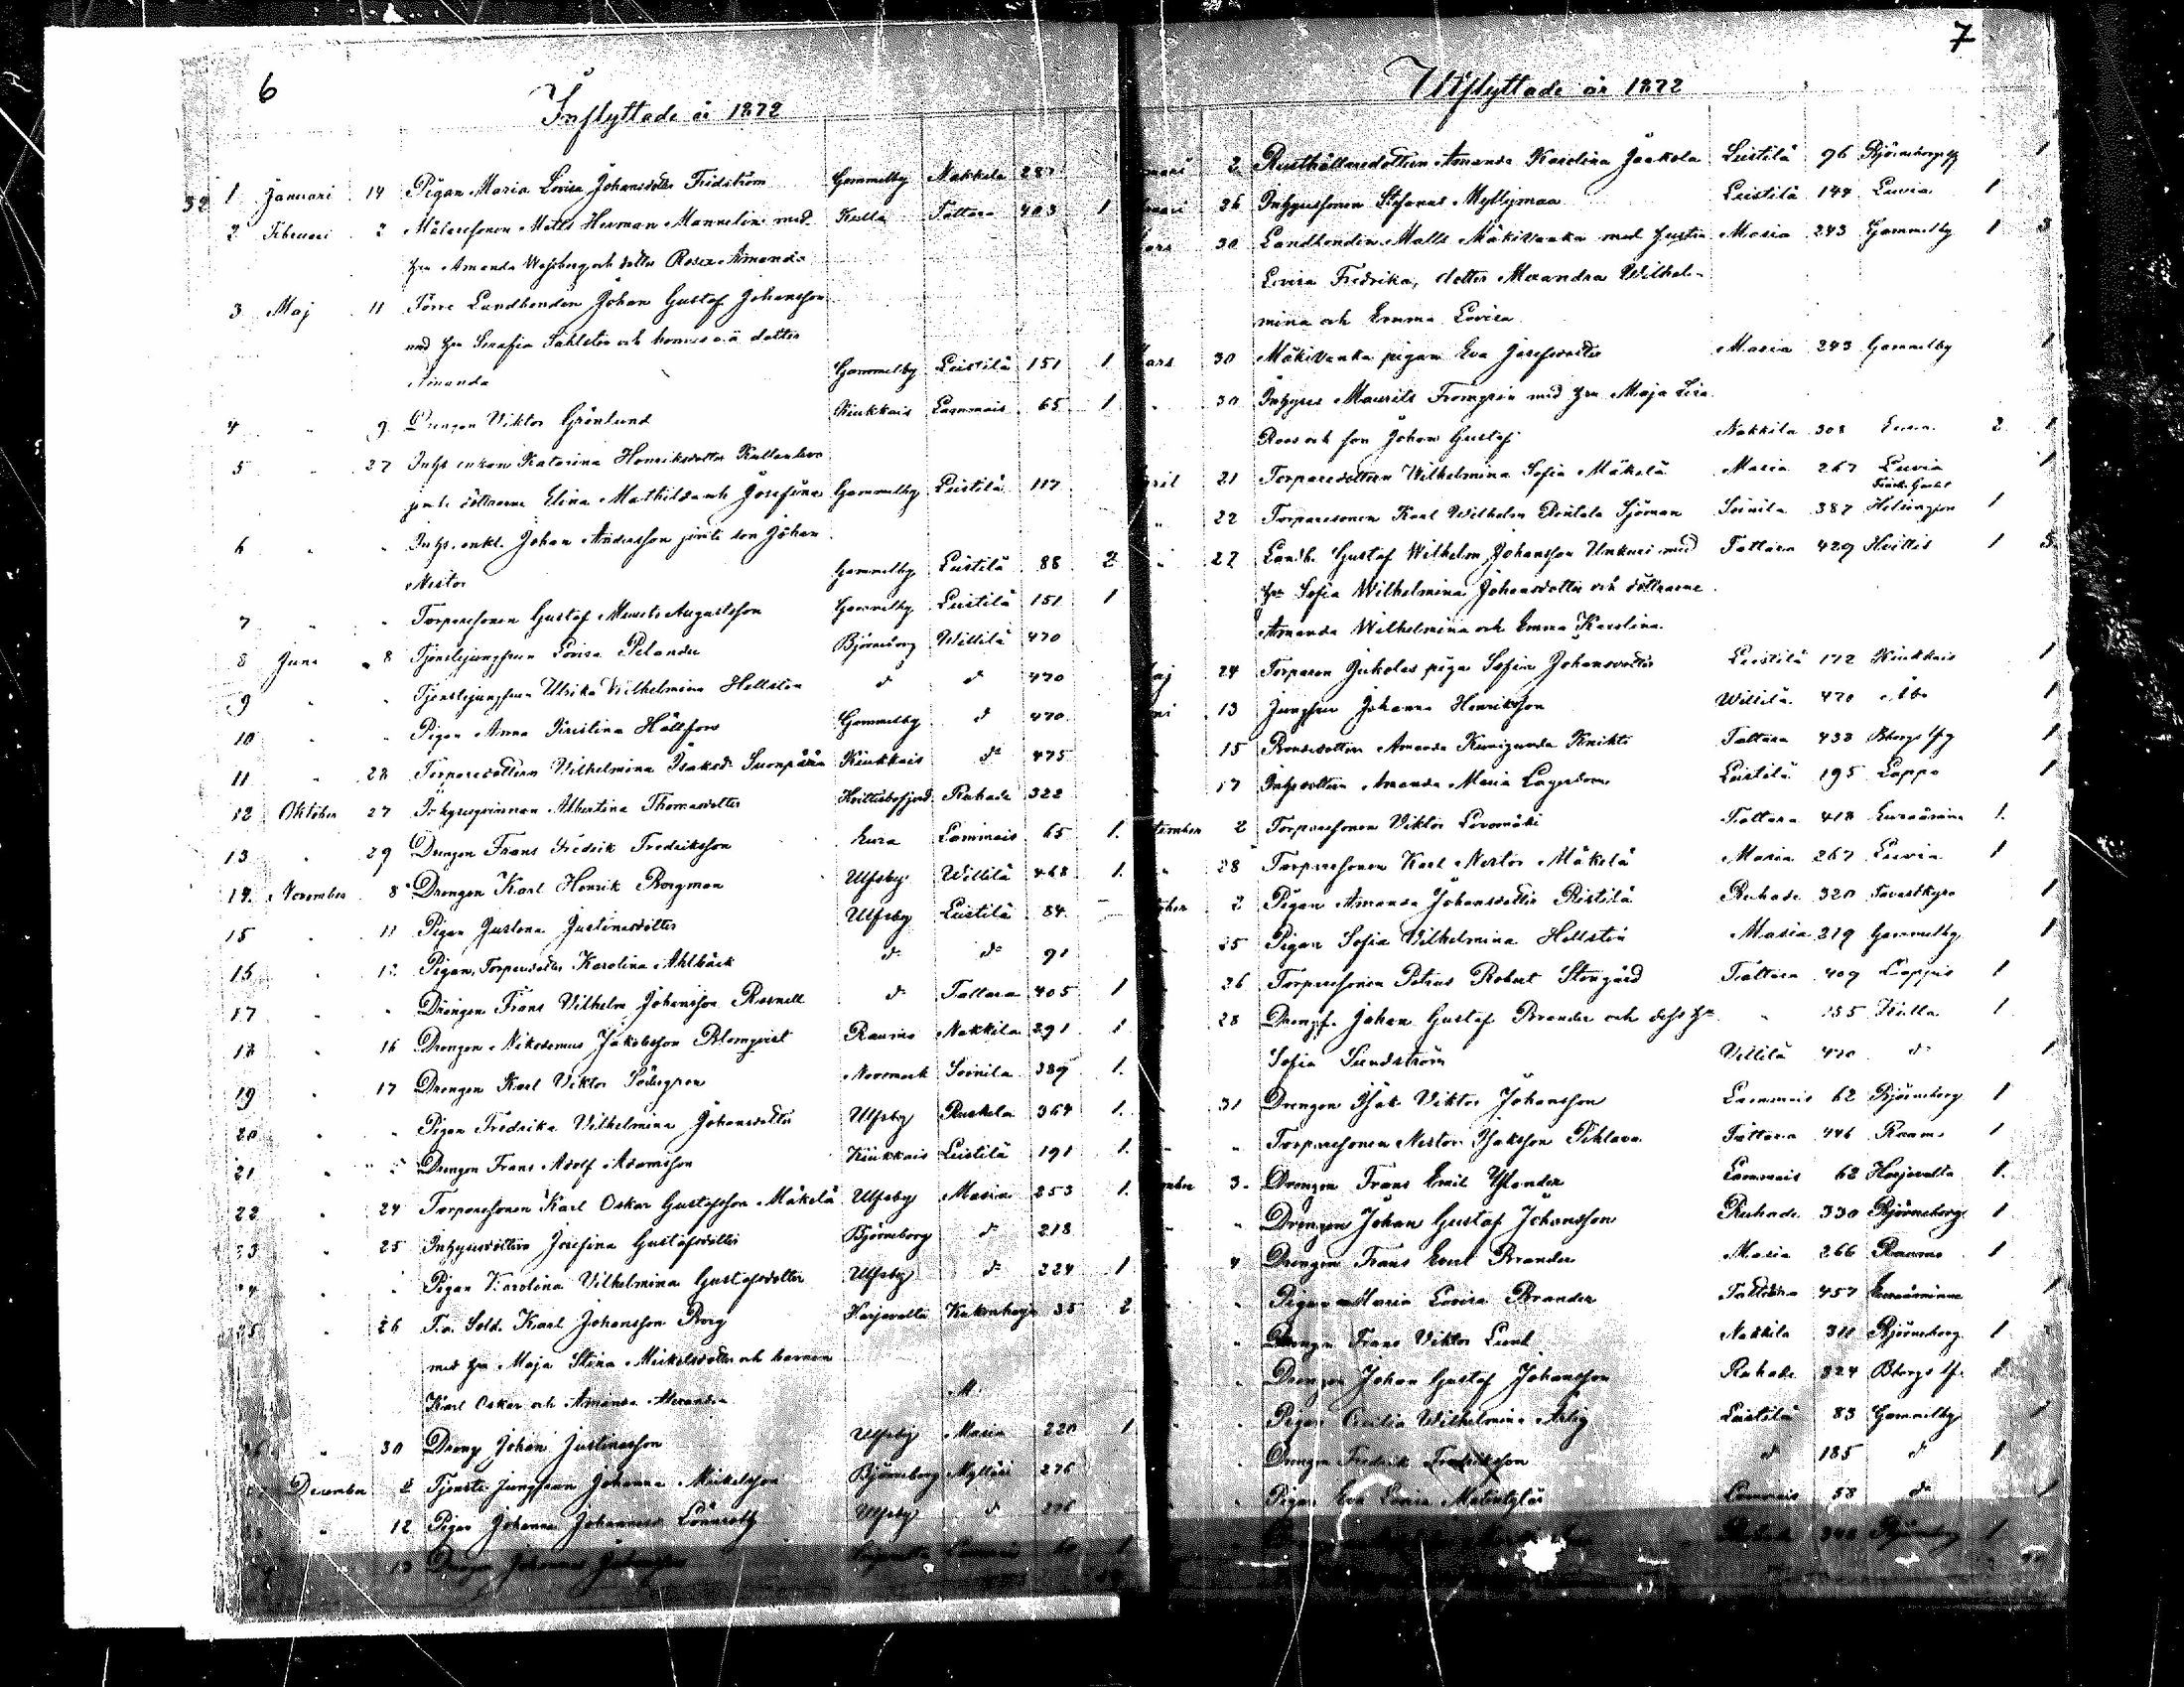 6
Inflyttade år 1872
1 Januari 14 Pigan Maria Lovisa Johansdotter Fridström Gammelby Nakkila 287
2 Februari 2 Målaresonen Matts Herman Mannelin med Kulla Tattara 403 1
hu Amanda Wessberg och dotter Rosa Amanda
3 Maj 11 Förre Landbonden Johan Gustaf Johansson
med hu Serafia Sahlsten och hennes o.ä dotter
Amanda Gammelby Leistilä 151 1
4 " 9 Drengen Viktor Grönlund Kiukkais Lammais 65 1
5 " 27 Inhs enkan Katarina Henriksdotter
jemte döttrarne Elina Mathilda och Josefina Gammelby Leistilä 117
6 " " Inhs. enkl. Johan Andersson jemte son Johan
Nestor Gammelby Leistilä 88 2
7 " " Torparesonen Gustaf Maurits Augustsson Gammelby Leistilä 151 1
8 Juni 8 Tjenstejungfrun Lovisa Pelander Björneborg Willilä 470
9 " " Tjenstejungfrun Ulrika Wilhelmina Hellsten d:o d:o 470
10 " " Pigan Anna Kristina Hällfors Gammelby d:o 470
11 " 28 Torparedottern Wilhelmina Isaksd:r Suonpää Kiukkais d:o 475
12 Oktober 27 Inhysesqvinnan Albertina Thomasdotter Hvittisbofjerd Ruhade 322
13 " 29 Drengen Frans Fredrik Fredriksson Eura Lammais 65 1.
14. November 8 Drengen Karl Henrik Borgman Ulfsby Willilä 468 1.
15 " 11 Pigan Gustava Justinasdotter Ulfsby Leistilä 84
16 " 12 Pigan, Torparedotter Karolina Ahlbäck d:o d:o 91
17 " " Drengen Frans Vilhelm Johansson Rosnell d:o Tattara 405 1
18 " 16 Drengen Nikodemus Jakobsson Blomqvist Raumo Nakkila 291 1
19 " 17 Drengen Karl Viktor Södergren Norrmark Soinila 389 1.
20 " " Pigan Fredrika Vilhelmina Johansdotter Ulfsby Ruskela 364 1.
21 " " Drengen Frans Adolf Adamsson Kiukkais Leistilä 191 1.
22 " 24 Torparesonen Karl Oskar Gustafsson Mäkelä Ulfsby Masia 253 1.
23 " 25 Inhysesdottern Josefina Gustafsdotter Björneborg d:o 218
24 " " Pigan Karolina Vilhelmina Gustafsdotter Ulfsby d:o 224 1
25 " 26 F.d. Sold. Karl Johansson Borg Harjavalta 35 2
med hu Maja Stina Mickelsdotter och barnen
Karl Oskar och Amanda Alexandra
26 " 30 Dreng Johan Justinasson Ulfsby Masia 220 1
December 2 Tjenste Jungfrun Johanna Mickelsson Björneborg Mylläri 276
" 12 Pigan Johanna Johannesd. Lönnroth Ulfsby d:o 276
13 Drengen Johannes 1
7
Utflyttade år 1872
2 Rusthållaredottern Amanda Karolina Jaakola Leistilä 96 Björneborgs 1
26 Inhysessonen Stefanus Myllymaa Leistilä 144 Luvia 1
30 Landbonden Matts Mäkivaaka med hustru Masia 243 Gammelby 1 3
Lovisa Fredrika, dotter Alexandra Wilhel-
mina och Emma Lovisa
30 Mäkivaaka pigan Eva Josefsdotter Masia 243 Gammelby 1
30 Inhyses Maurits Fromgrén med hu Maja Lisa
Roos och son Johan Gustaf Nakkila 308 Eura 2 1
21 Torparedottern Wilhelmina Sofia Mäkelä Masia 267 Luvia 1
22 Torparesonen Karl Wilhelm Rintala Sjöman Soinila 387 Helsingfors 1
27 Landb. Gustaf Wilhelm Johansson Unkuri med Tattara 429 Hvittis 1 3
hu Sofia Wilhelmina Johansdotter och döttrarne
Amanda Wilhelmina och Emma Karolina
24 Torparen Jukolas piga Sofia Johansdotter Leistilä 172 Kiukkais 1
13 Jungfrun Johanna Henriksson Willilä 470 Åbo 1
15 Bondedottern Amanda Kunigunda Knihti Tattara 438 1
17 Inhs dottern Amanda Maria Lagerbom Leistilä 195 Lappo 1
2 Torparesonen Viktor Tattara 418 Euraåminne 1.
28 Torparesonen Karl Nestor Mäkelä Masia 267 Luvia 1
2 Pigan Amanda Johansdotter Ristilä Ruhade 320 Tavastkyro 1
25 Pigan Sofia Vilhelmina Hellstén Masia 219 Gammelby 1
26 Torparesonen Petrus Robert Storgård Tattara 409 Lappis 1
28 Drengen Johan Gustaf Brander och dess hu " 155 Kulla 1
Sofia Sundström Villilä 470 d:o 1
31 Drengen Isak Viktor Johansson Lammais 62 Björneborg 1
" Torparesonen Nestor Isaksson Pihlava Tattara 446 Raumo 1
3. Drengen Frans Emil Ylander Lammais 62 Harjavalta 1.
" Drengen Johan Gustaf Johansson Ruhade 330 Björneborg 1
4 Drengen Frans Evert Brander Masia 266 Raumo 1
" Pigan Maria Lovisa Brander Tattara 457 Euraåminne 1
" Drengen Frans Viktor Lund Nakkila 311 Björneborg 1
" Drengen Johan Gustaf Johansson Ruhade 324 1
" Pigan Cecilia Wilhelmina Ärlig Leistilä 83 Gammelby 1
" Drengen Fredrik Fredriksson d:o 185 d:o 1
" Pigan Eva Lovisa Lammais 58 d:o 1
1